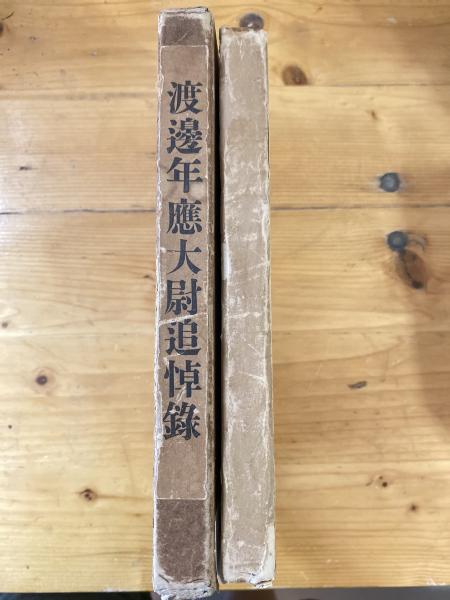 渡邊年應大尉追悼錄